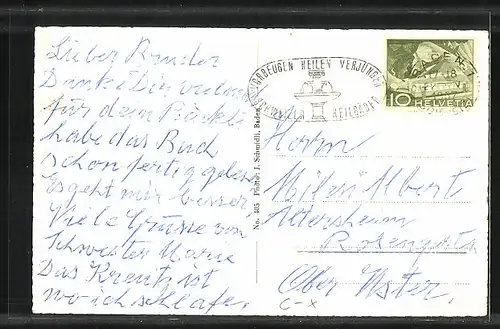 Lieber Bruder
Danke Dir vielmal
für dein Päckli
habe das Buch
schon fertig gelesen
Es geht mir besser,
Viele Grüsse von
Schwester Marie
Das Kreutz ist
wo ich schlafe.
No. 405 Photo: J. Schmidli, Baden
VORBEUGEN HEILEN VERJÜNGEN
HEILBÄDER
BADEN 1
18
10 HELVETIA
Herrn
Albert
Altersheim
Ober Uster.